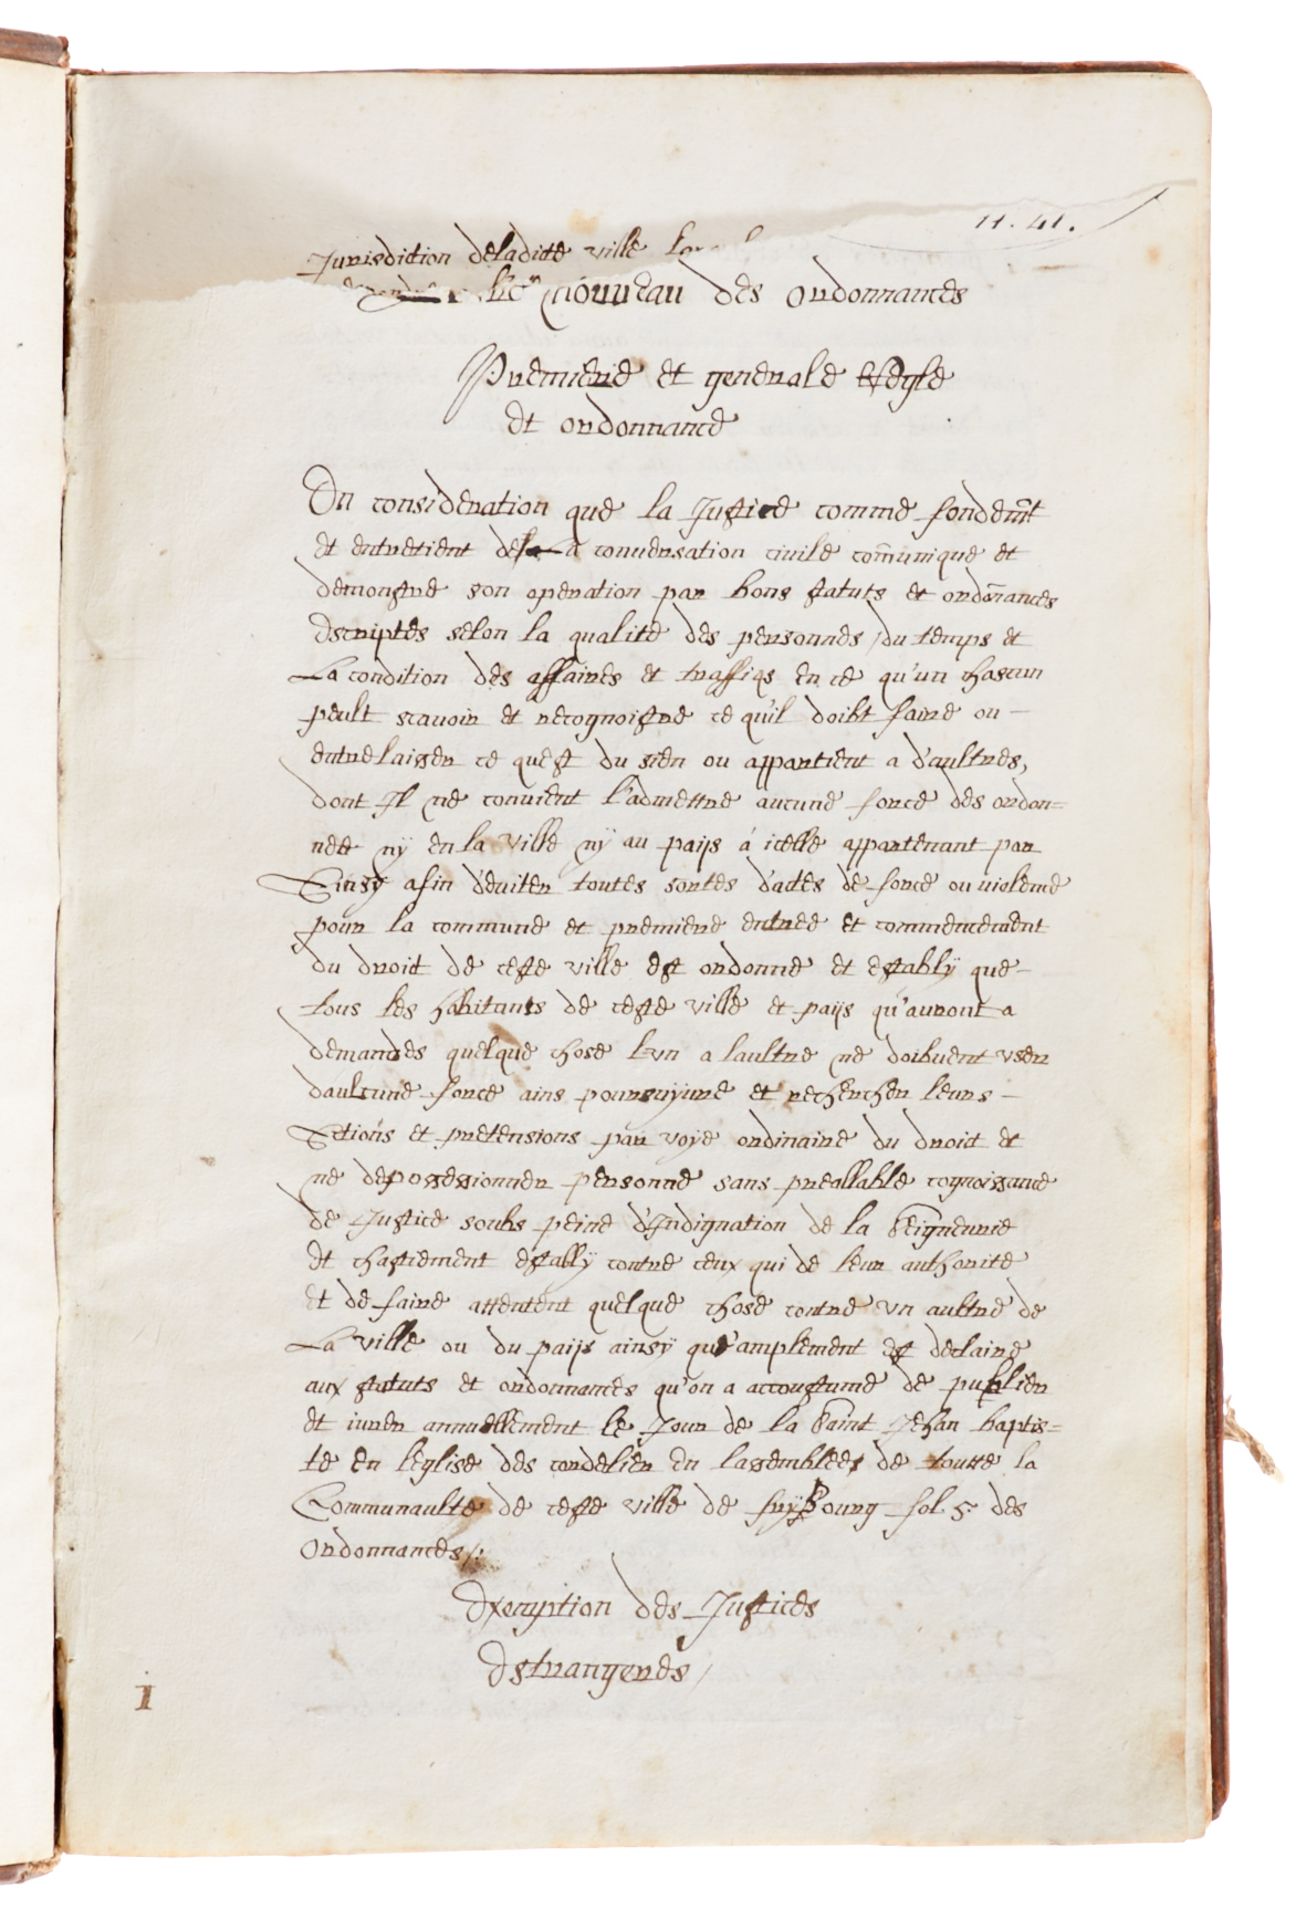 H. 41.
Jurisdition deladicte ville
nouveau des ordonnances
Premiere et generale Regle
et ordonnance
En consideration que la Justice comme fondem̃t
et entretient de La conuersation ciuile com̃unique et
demonstre son operation par bons statuts et ordoñances
Escriptes selon la qualité des personnes, du temps et
La condition des affaires et traffiqs en ce qu'un chascun
peult scauoir et recognoistre ce qu'il doibt faire ou -
entrelaisser ce quest du sien ou appartient a d'aultres,
dont Il ne conuient l'admettre aucune force des ordon=
nee nÿ en la ville nÿ au paijs á icelle appartenant par
Ainsy afin d'euiter toutes sortes d'actes de force ou violence
pour la commune et premiere entree et commencement
du droict de ceste ville est ordonne et establÿ que -
tous les habitants de ceste ville et paijs qu'auront a
demandes quelque chose lvn a laultre ne doibuent vser
daulcune force ains poursuyure et rechercher leurs -
Actions et pretensions par voye ordinaire du droict et
ne depossessionner personne sans preallable cognoissance
de Justice soubs peine d'Indignation de la Seigneurie
et chastiement estably contre ceux qui de leur authorite
et de faire attentent quelque chose contre vn aultre de
La ville ou du paijs ainsÿ que'amplement est declaire
aux statuts et ordonnances qu'on a accoustume de publier
et iurer annuellement le Jour de la Saint Jehan baptis=
te en l'eglise des cordelier en lassemblees de toutte la
Communaulte de ceste ville de frÿbourg fol. 5. des
Ordonnances /:
Exemption des Justices
Estrangeres /
1